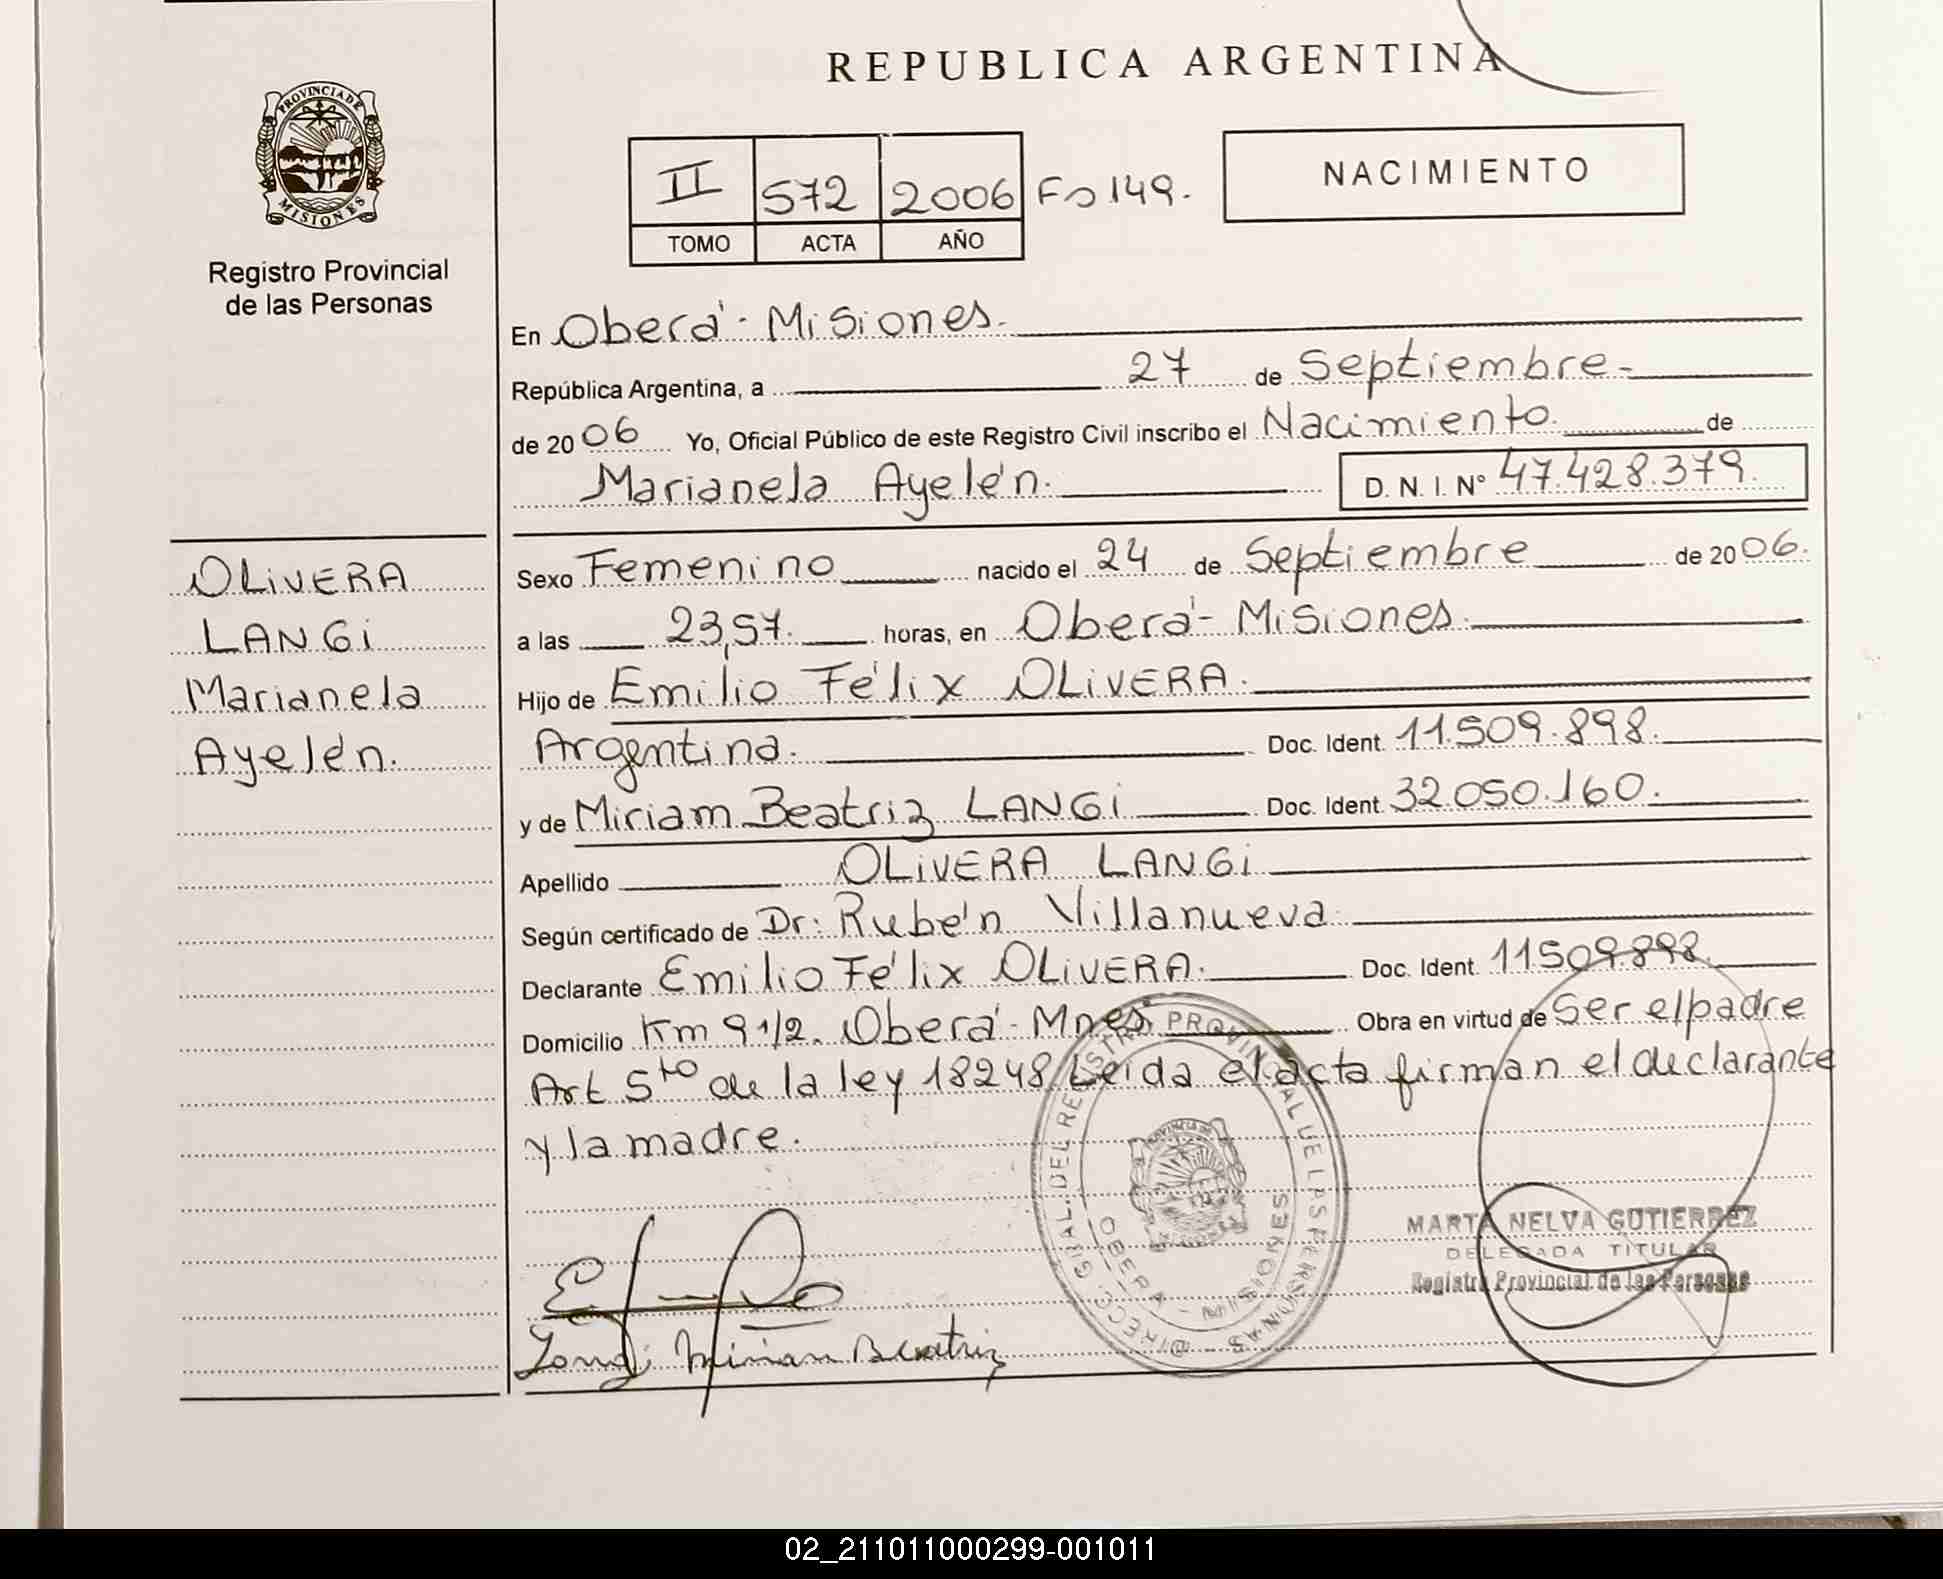 REPUBLICA ARGENTINA
PROVINCIA DE
MISIONES
Registro Provincial
de las Personas
II 572 2006 Fo 149.
TOMO ACTA AÑO
NACIMIENTO
En Oberá - Misiones.
República Argentina, a 27 de Septiembre -
de 2006 Yo, Oficial Público de este Registro Civil inscribo el Nacimiento. de
Marianela Ayelén. D. N. I. N° 47.428.379.
OLiVERA
LANGi
Marianela
Ayelén.
Sexo Femenino nacido el 24 de Septiembre de 2006.
a las 23,57. horas, en Oberá - Misiones.
Hijo de Emilio Félix OLiVERA.
Argentina. Doc. Ident. 11.509.898.
y de Miriam Beatriz LANGi Doc. Ident. 32.050.160.
Apellido OLiVERA LANGi
Según certificado de Dr: Rubén Villanueva.
Declarante Emilio Félix OLiVERA. Doc. Ident. 11509.898.
Domicilio Km 9 1/2. Oberá - Mnes. Obra en virtud de Ser el padre
Art 5to de la ley 18248 Leida el acta firman el declarante
y la madre.
DIRECC. GRAL. DEL REGISTRO PROVINCIAL DE LAS PERSONAS
OBERA - MISIONES
MARTA NELVA GUTIERREZ
DELEGADA TITULAR
Registro Provincial de las Personas
Langi Miriam Beatriz
02_211011000299-001011